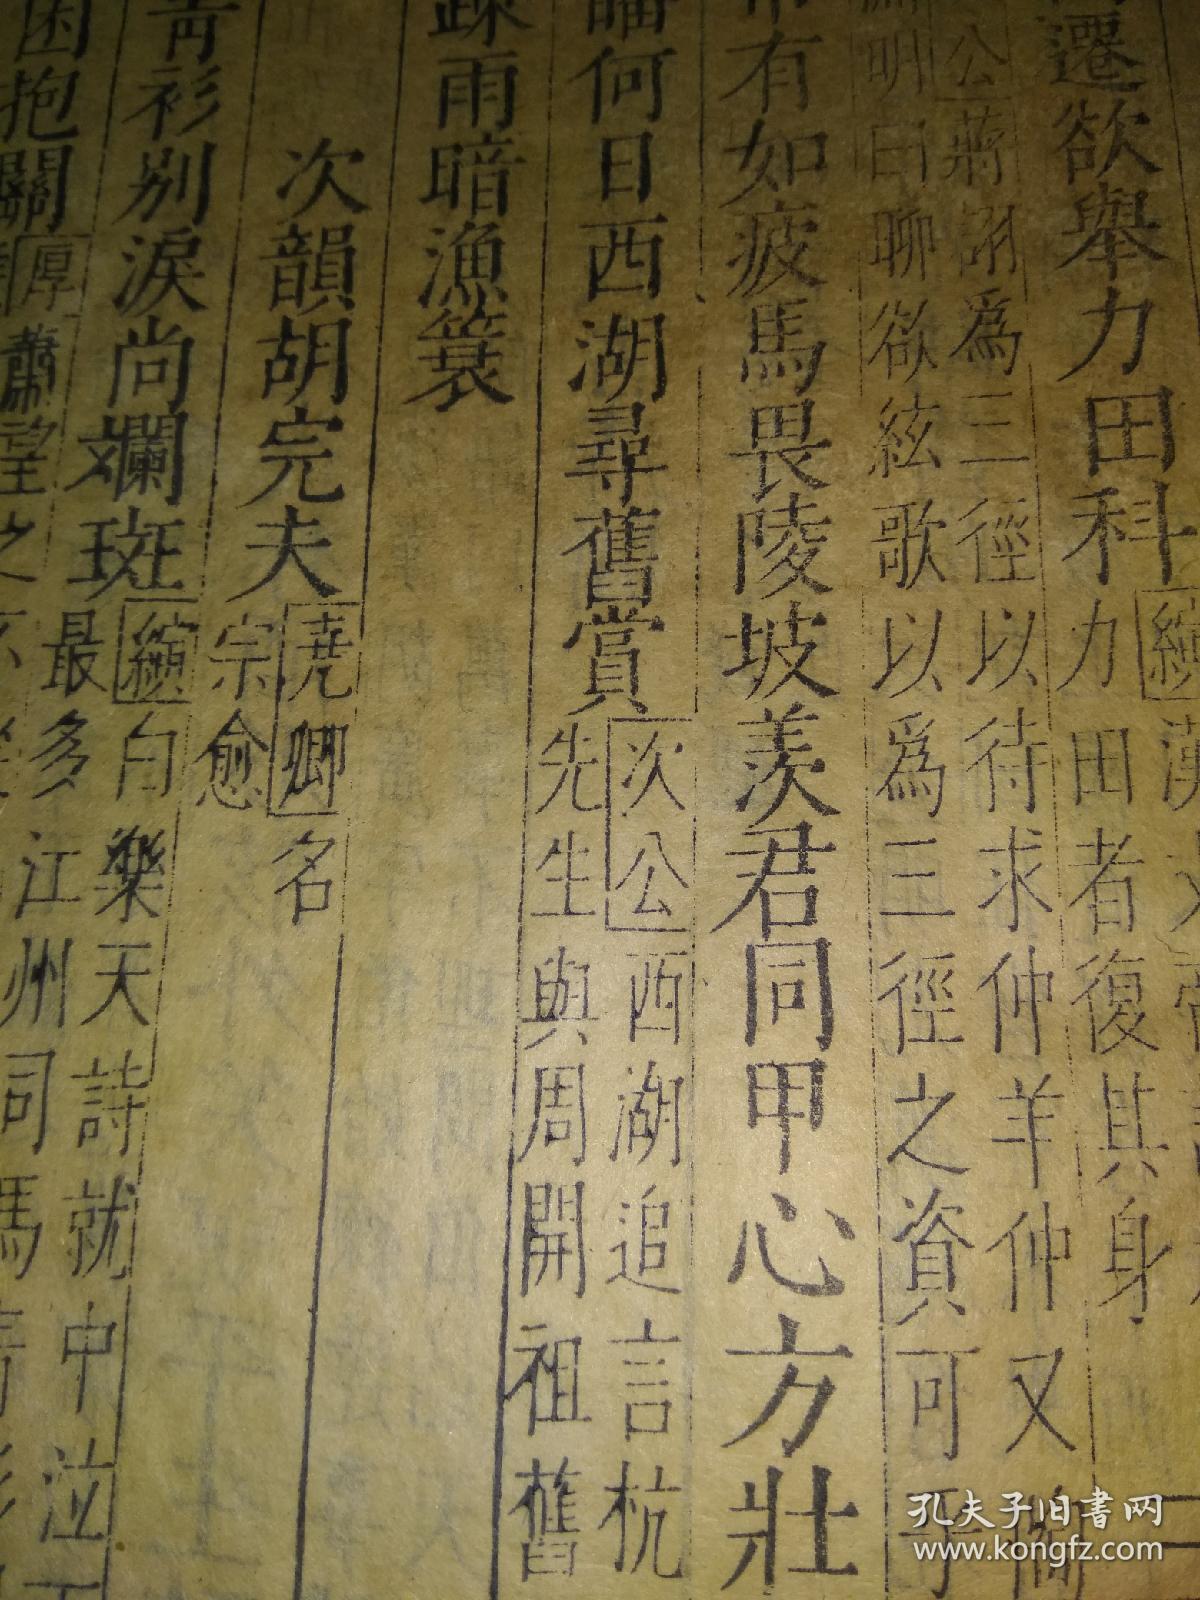 遷欲舉力田科 續
力田者復其身
公 蔣詡爲三徑以待求仲羊仲又
明曰聊欲絃歌以爲三徑之資可乎
有如疲馬畏陵坡羨君同甲心方壯
何日西湖尋舊賞 次公 西湖追言杭
先生與周開祖舊
疎雨暗漁簑
次韻胡完夫 堯卿 名
宗愈
青衫別淚尚斕斑 續 白樂天詩就中泣下
最多江州司馬青衫
抱關 厚 蕭望之
孔夫子旧书网
www.kongfz.com